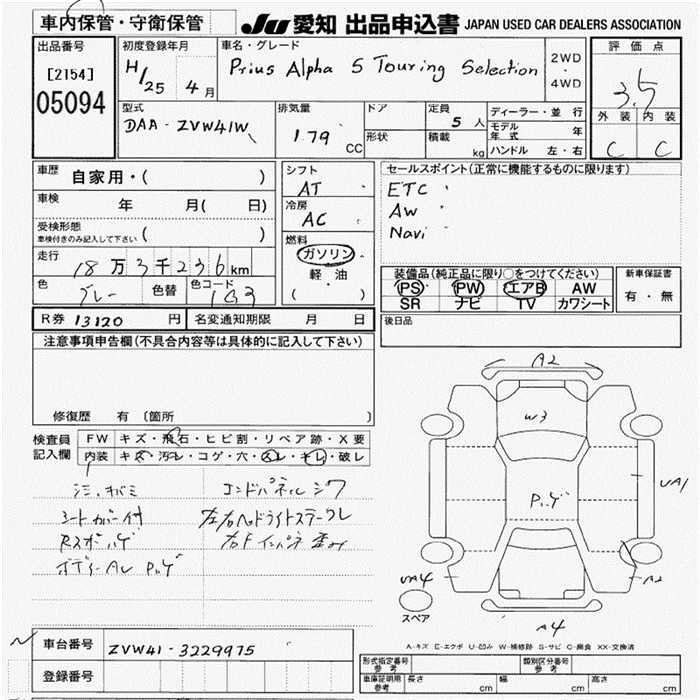 車内保管・守衛保管
JU 愛知 出品申込書 JAPAN USED CAR DEALERS ASSOCIATION
出品番号
[2154]
05094
初度登録年月
H/25 4月
車名・グレード
Prius Alpha S Touring Selection
2WD
・
4WD
評価点
3.5
外装 内装
C C
型式
DAA-ZVW41W
排気量
1.79 CC
ドア
形状
定員 5人
積載 kg
ディーラー・並行
モデル年式 年
ハンドル 左・右
車歴 自家用・( )
車検 年 月( 日)
受検形態
車検付きのみ記入して下さい ( )
走行 18万3千236km
色 グレー 色替 色コード 1G3
シフト
AT
冷房
AC
燃料
ガソリン
軽・油
( )
セールスポイント(正常に機能するものに限ります)
ETC
AW
Navi
装備品(純正品に限り○をつけてください)
PS PW エアB AW
SR ナビ TV カワシート
新車保証書
有・無
R券 13120 円 名変通知期限 月 日
後日品
注意事項申告欄(不具合内容等は具体的に記入して下さい)
修復歴 有 〔箇所 〕
検査員記入欄
FW キズ・飛石・ヒビ割・リペア跡・X要
内装 キズ・汚レ・コゲ・穴・スレ・キレ・破レ
シートカバー付
左右ヘッドライトステークレ
A2
W3
UA1
Pハゲ
UA4
A2
A4
スペア
A-キズ E-エクボ U-凹み W-補修跡 S-サビ C-腐食 XX-交換済
車台番号 ZVW41-3229975
登録番号
形式指定番号 参考
類別区分番号 参考
車庫証明用 参考 長さ cm 幅 cm 高さ cm